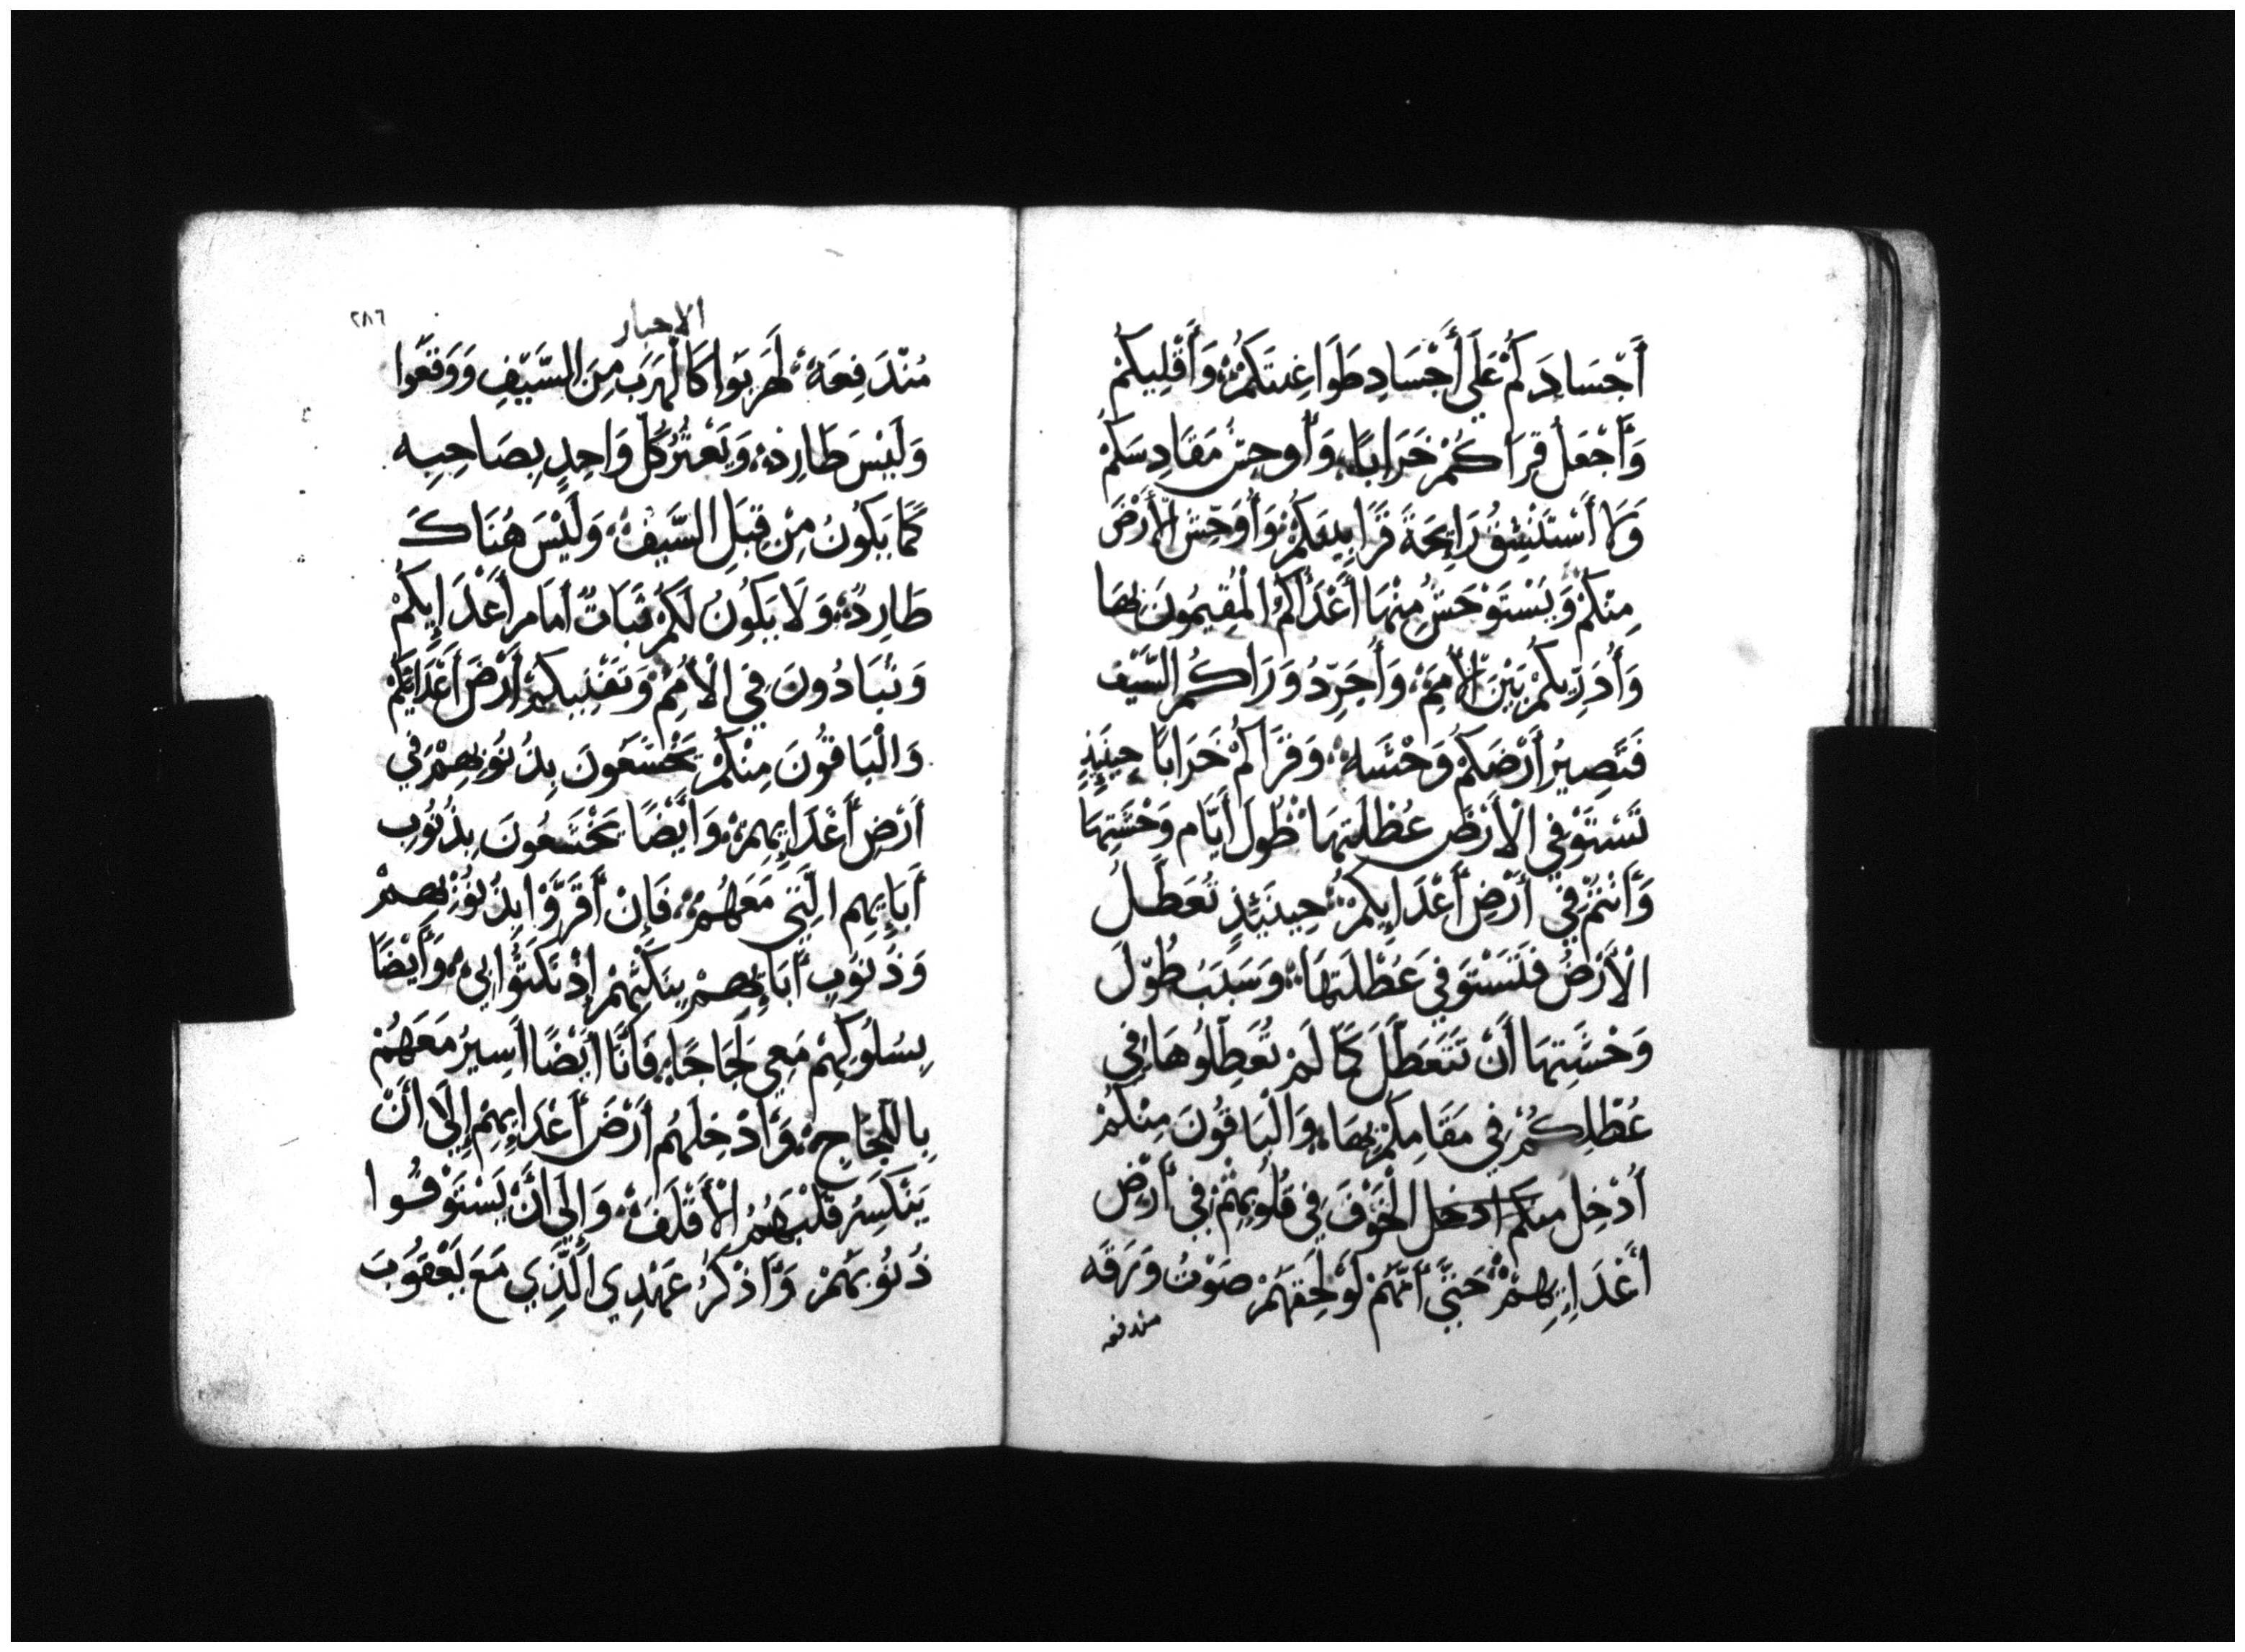 أَجْسَادَكُمْ عَلَى أَجْسَادِ طَوَاغِيتِكُمْ وَأَقْلِيكُمْ
وَأَجْعَلُ قِرَاكُمْ خَرَابًا وَأُوحِشُ مَقَادِسَكُمْ
وَلَا أَسْتَنْشِقُ رَايِحَةَ قَرَابِينِكُمْ وَأُوَحِّشُ الْأَرْضَ
مِنْكُمْ وَيَسْتَوْحَشُ مِنْهَا أَعْدَاكُمُ الْمُقِيمُونَ بِهَا
وَأُدَرِّيكُمْ بَيْنَ الْأُمَمِ وَأُجَرِّدُ وَرَاكُمُ السَّيْفَ
فَتَصِيرُ أَرْضَكُمْ وَحْشَه وَقُرَاكُمْ خَرَابًا حِينَئِذٍ
تَسْتَوْفِي الْأَرْضُ عُطْلَتِهَا طُولَ أَيَّامِ وَحْشَتِهَا
وَأَنْتُمْ فِي أَرْضِ أَعْدَايِكُمْ حِينَئِذٍ تُعَطَّلُ
الْأَرْضُ فَلْتَسْتَوفِي عَطْلَتِهَا وَسَبَبُ طُوْلَ
وَحْشَتِهَا أَنْ تَتَعَطَّلَ كَمَا لَمْ تُعَطِّلُوهَا فِي
عُطْلِكُمْ فِي مَقَامِكُمْ بِهَا وَالْبَاقُونَ مِنْكُمْ
أُدْخِلُ منكم ادخل الْخَوْفَ فِي قُلُوبِهِمْ فِي أَرْضِ
أَعْدَايِهِمْ حَتَّى أَنَّهُمْ لَوْ لَحِقَهُمْ صَوْتُ وَرَقَه
مندفعه
الاحبار
٢٨٦
مُنْدَفِعَه لَهَرَبُوا كَالْهَرَبِ مِنَ السَّيْفِ وَوَقَعُوا
وَلَيْسَ طَارِدٌ وَيَعْثُرُ كُلُّ وَاحِدٍ بِصَاحِبِه
كَمَا يَكُونُ مِنْ قِبَلِ السَّيْفِ وَلَيْسَ هُنَاكَ
طَارِدٌ وَلَا يَكُونُ لَكُمْ ثَبَاتٌ أَمَامَ أَعْدَايِكُمْ
وَتُبَادُونَ فِي الْأُمَمِ وَتَفْنِيكُمْ أَرْضَ أَعْدَايِكُمْ
وَالْبَاقُونَ مِنْكُمْ يَخْشَعُونَ بِذُنُوبِهِمْ فِي
أَرْضِ أَعْدَايِهِمْ وَأَيْضًا يَخْشَعُونَ بِذُنُوبِ
أَبَايِهِمِ الَّتِي مَعَهُمْ فَإِنْ أَقَرُّوا بِذُنُوبِهِمْ
وَذُنُوبِ أَبَايِهِمْ بِنَكْثِهِمْ إِذْ نَكَثُوا بِي وَأَيْضًا
بِسُلُوكِهِمْ مَعِي لَجَاجًا فَأَنَا أَيْضًا أَسِيرُ مَعَهُمْ
بِاللَّجَاجِ وَأُدْخِلَهُمْ أَرْضَ أَعْدَايِهِمْ إِلَى أَنْ
يَنْكَسِرُ قَلْبَهُمُ الْأَقْلَفُ وَإِلَى أَنْ يَسْتَوْفُوا
ذُنُوبَهُمْ وَأَذْكُرُ عَهْدِي الَّذِي مَعَ يَعْقُوبَ